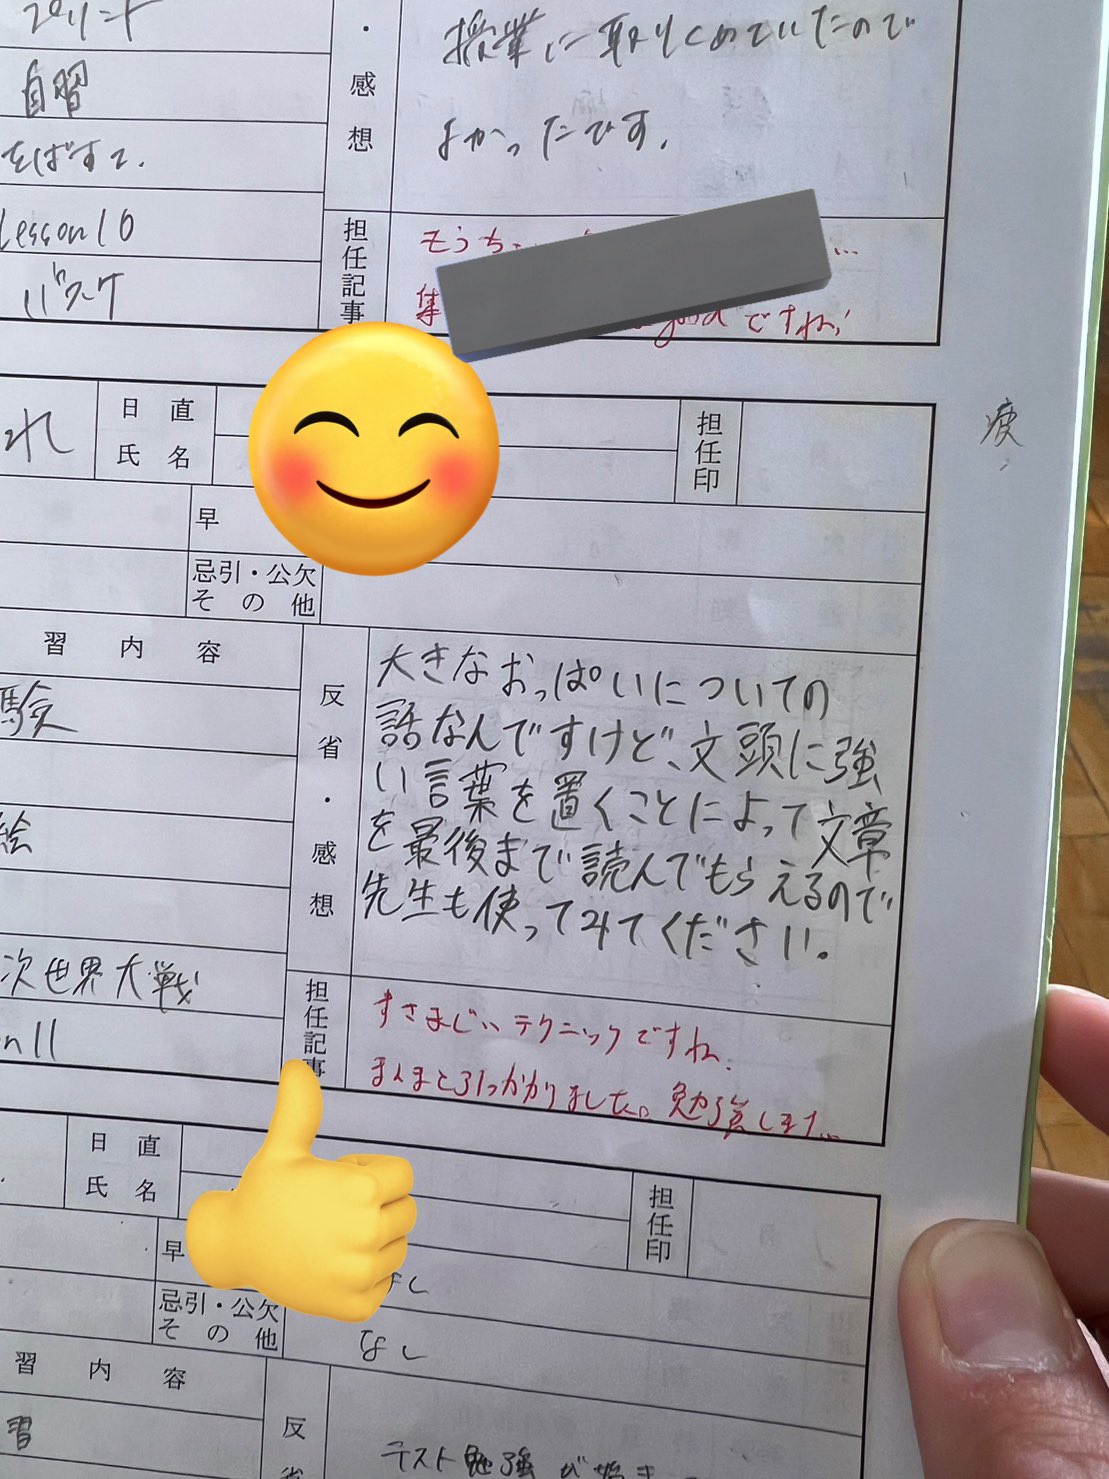 プリント
自習
をばすて.
Lesson10
バスケ
・感想
授業に取りくめていたので
よかったです。
担任記事
もうち
集 good ですね!
れ
日直
氏名
担任印
疲
早
忌引・公欠
その他
習内容
験
絵
次世界大戦
n11
反省・感想
大きなおっぱいについての
話なんですけど、文頭に強
い言葉を置くことによって文章
を最後まで読んでもらえるので
先生も使ってみてください。
担任記事
すさまじいテクニックですね.
まんまと引っかかりました。勉強します…
日直
氏名
担任印
早
なし
忌引・公欠
その他
なし
習内容
習
反省
テスト勉強が始ま